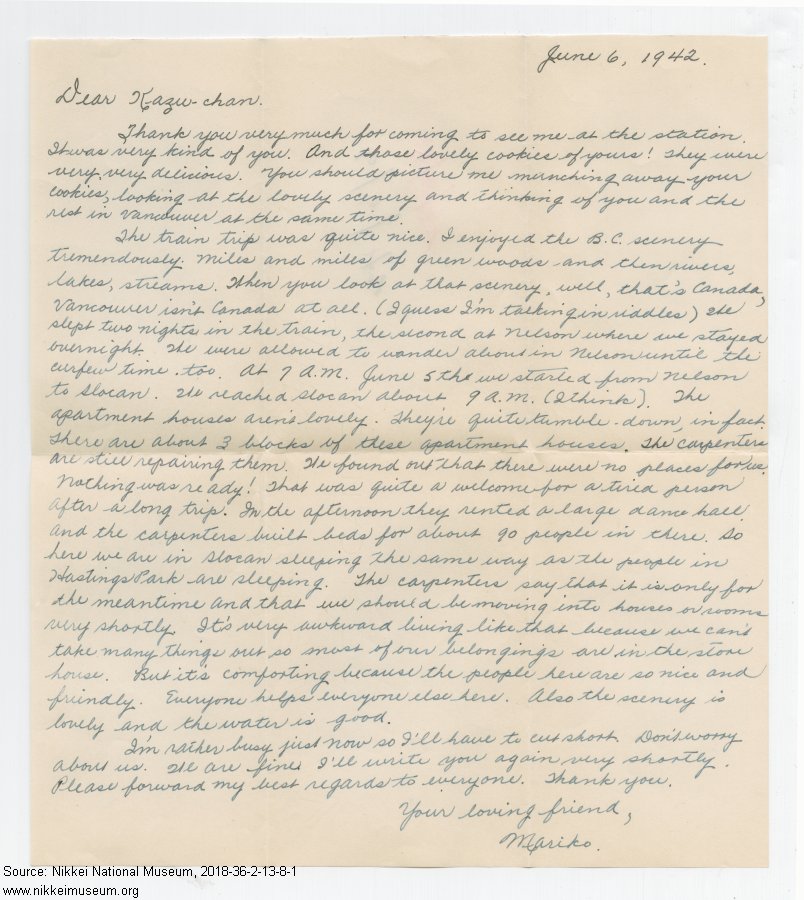 June 6, 1942.
Dear Kazu-chan.
Thank you very much for coming to see me at the station.
It was very kind of you. And those lovely cookies of yours! They were
very, very delicious. You should picture me munching away your
cookies, looking at the lovely scenery and thinking of you and the
rest in Vancouver at the same time.
The train trip was quite nice. I enjoyed the B.C. scenery
tremendously. Miles and miles of green woods and then rivers,
lakes, streams. When you look at that scenery, well, that's Canada,
Vancouver isn't Canada at all. (I guess I'm talking in riddles) We
slept two nights in the train, the second at Nelson where we stayed
overnight. We were allowed to wander about in Nelson until the
curfew time, too. At 7 A.M. June 5th we started from Nelson
to Slocan. We reached Slocan about 9 A.M. (I think). The
apartment houses aren't lovely. They're quite tumble-down, in fact.
There are about 3 blocks of these apartment houses. The carpenters
are still repairing them. We found out that there were no places for us.
Nothing was ready! That was quite a welcome for a tired person
after a long trip. In the afternoon they rented a large dance hall
and the carpenters built beds for about 90 people in there. So
here we are in Slocan sleeping the same way as the people in
Hastings Park are sleeping. The carpenters say that it is only for
the meantime and that we should be moving into houses or rooms
very shortly. It's very awkward living like that because we can't
take many things out so most of our belongings are in the store
house. But it's comforting because the people here are so nice and
friendly. Everyone helps everyone else here. Also the scenery is
lovely and the water is good.
I'm rather busy just now so I'll have to cut short. Don't worry
about us. We are fine. I'll write you again very shortly.
Please forward my best regards to everyone. Thank you.
Your loving friend,
Mariko.
Source: Nikkei National Museum, 2018-36-2-13-8-1
www.nikkeimuseum.org